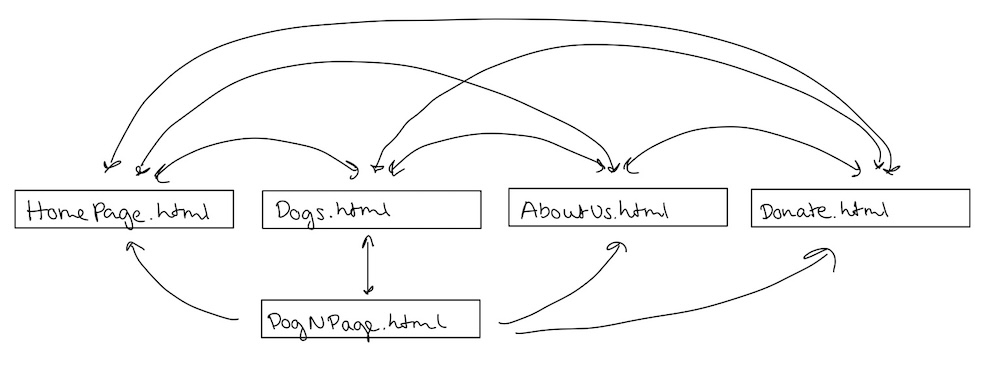 HomePage.html
Dogs.html
AboutUs.html
Donate.html
DogNPage.html